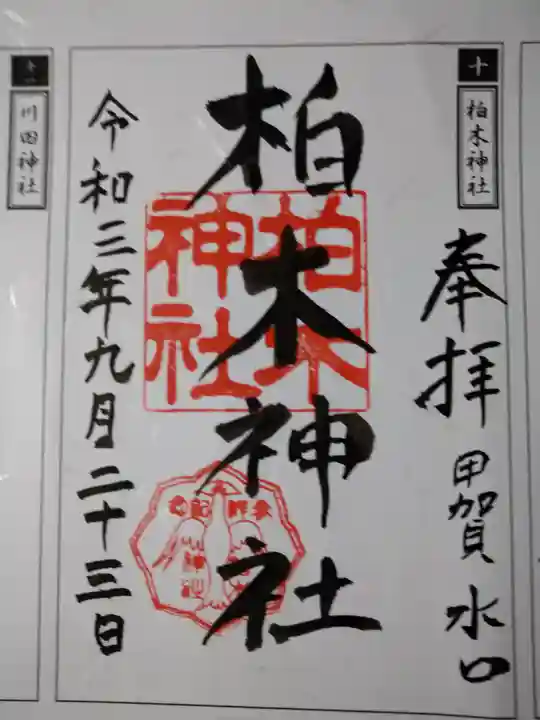 十
柏木神社
奉拝
甲賀 水口
柏木神社
柏木
神社
参拝記念
令和三年九月二十三日
十一
川田神社